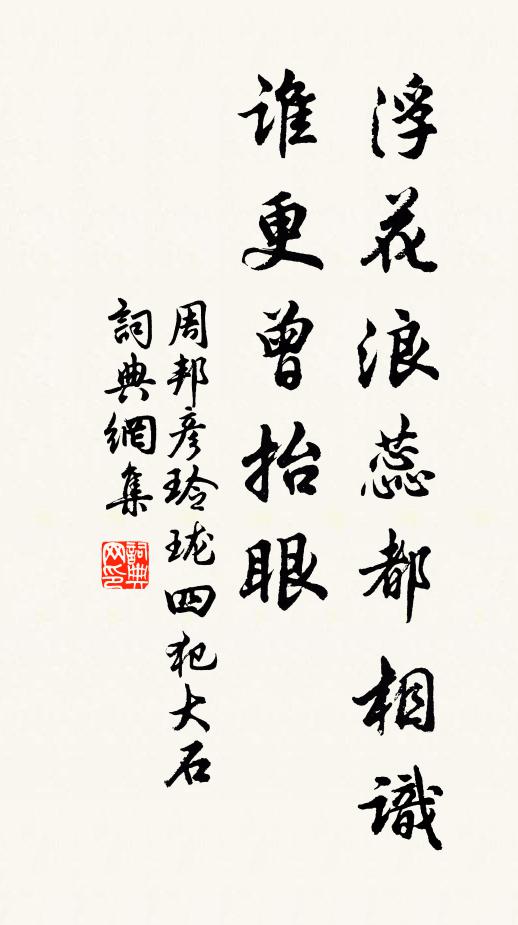 浮花浪蕊都相識
谁更曾抬眼
周邦彦玲珑四犯大石
詞典網集
詞典网印